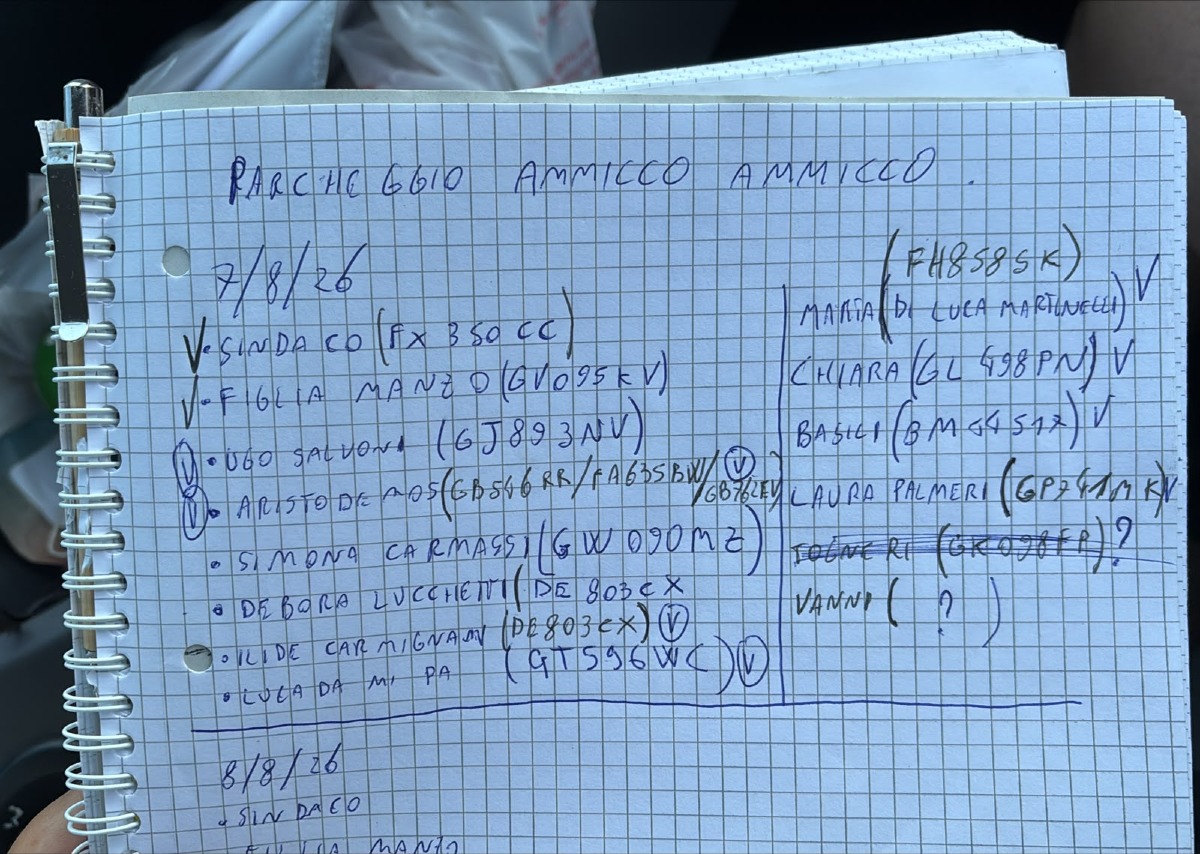 PARCHEGGIO AMMICCO AMMICCO.
7/8/26
V • SINDACO (FX 350 CC)
V • FIGLIA MANZO (GV095KV)
V • UGO SALVONI (GJ893NV)
V • ARISTODEMOS (GB546RR/FA635BW/GB762EV) V
• SIMONA CARMASSI (GW090MZ)
• DEBORA LUCCHETTI (DE803CX
• ILIDE CARMIGNANI (DE803CX) V
• LUCA DA MI PA (GT596WC) V
(FH858SK)
MARTA (DI LUCA MARTINELLI) V
CHIARA (GL498PN) V
BASILI (BM445) V
LAURA PALMERI (GP741MK) V
TOGNERI (GK098FR) ?
VANNI ( ? )
8/8/26
• SINDACO
FIGLIA MANZO